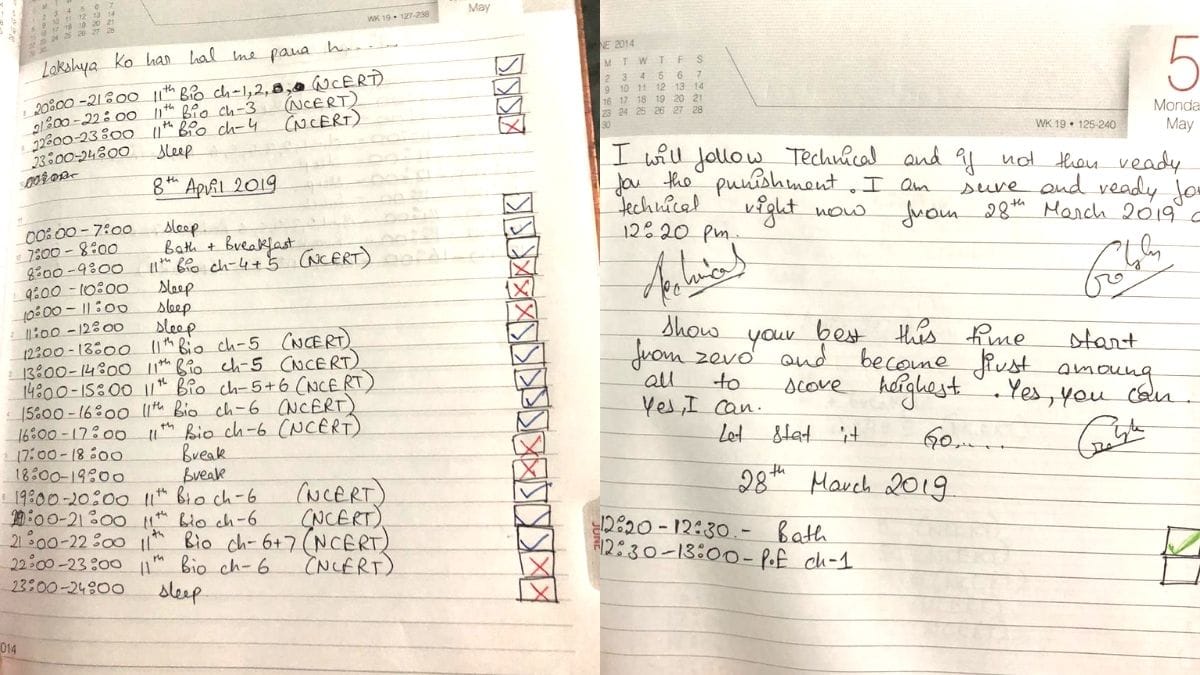 WK 19 • 127-238
May
Lakshya ko har hal me pana h.....
20:00-21:00 11th Bio ch-1,2, (NCERT)
21:00-22:00 11th Bio ch-3 (NCERT)
22:00-23:00 11th Bio ch-4 (NCERT)
23:00-24:00 sleep
8th April 2019
00:00-7:00 sleep
7:00-8:00 Bath + Breakfast
8:00-9:00 11th Bio ch-4+5 (NCERT)
9:00-10:00 sleep
10:00-11:00 sleep
11:00-12:00 sleep
12:00-13:00 11th Bio ch-5 (NCERT)
13:00-14:00 11th Bio ch-5 (NCERT)
14:00-15:00 11th Bio ch-5+6 (NCERT)
15:00-16:00 11th Bio ch-6 (NCERT)
16:00-17:00 11th Bio ch-6 (NCERT)
17:00-18:00 Break
18:00-19:00 Break
19:00-20:00 11th Bio ch-6 (NCERT)
20:00-21:00 11th Bio ch-6 (NCERT)
21:00-22:00 11th Bio ch-6+7 (NCERT)
22:00-23:00 11th Bio ch-6 (NCERT)
23:00-24:00 sleep
014
NE 2014
M T W T F S
2 3 4 5 6 7
9 10 11 12 13 14
16 17 18 19 20 21
23 24 25 26 27 28
30
5
Monda
May
WK 19 • 125-240
I will follow Technical and if not then ready
for the punishment. I am sure and ready for
technical right now from 28th March 2019
12:20 pm.
Technical
Show your best this time start
from zero and become first amoung
all to score heighest. Yes, you can.
Yes, I can.
Let stat it Go.....
28th March 2019
12:20-12:30.- Bath
12:30-13:00- P.E ch-1
JUNE